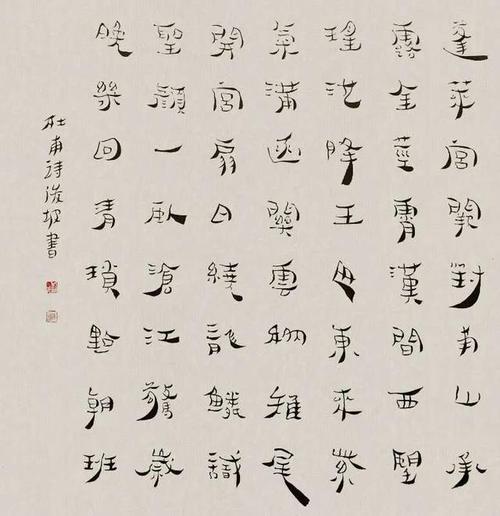 蓬萊宮闕對南山承
露金莖霄漢間西望
瑤池降王母東來紫
氣滿函關雲移雉尾
開宮扇日繞龍鱗識
聖顏一臥滄江驚歲
晚幾回青瑣點朝班
杜甫詩 書